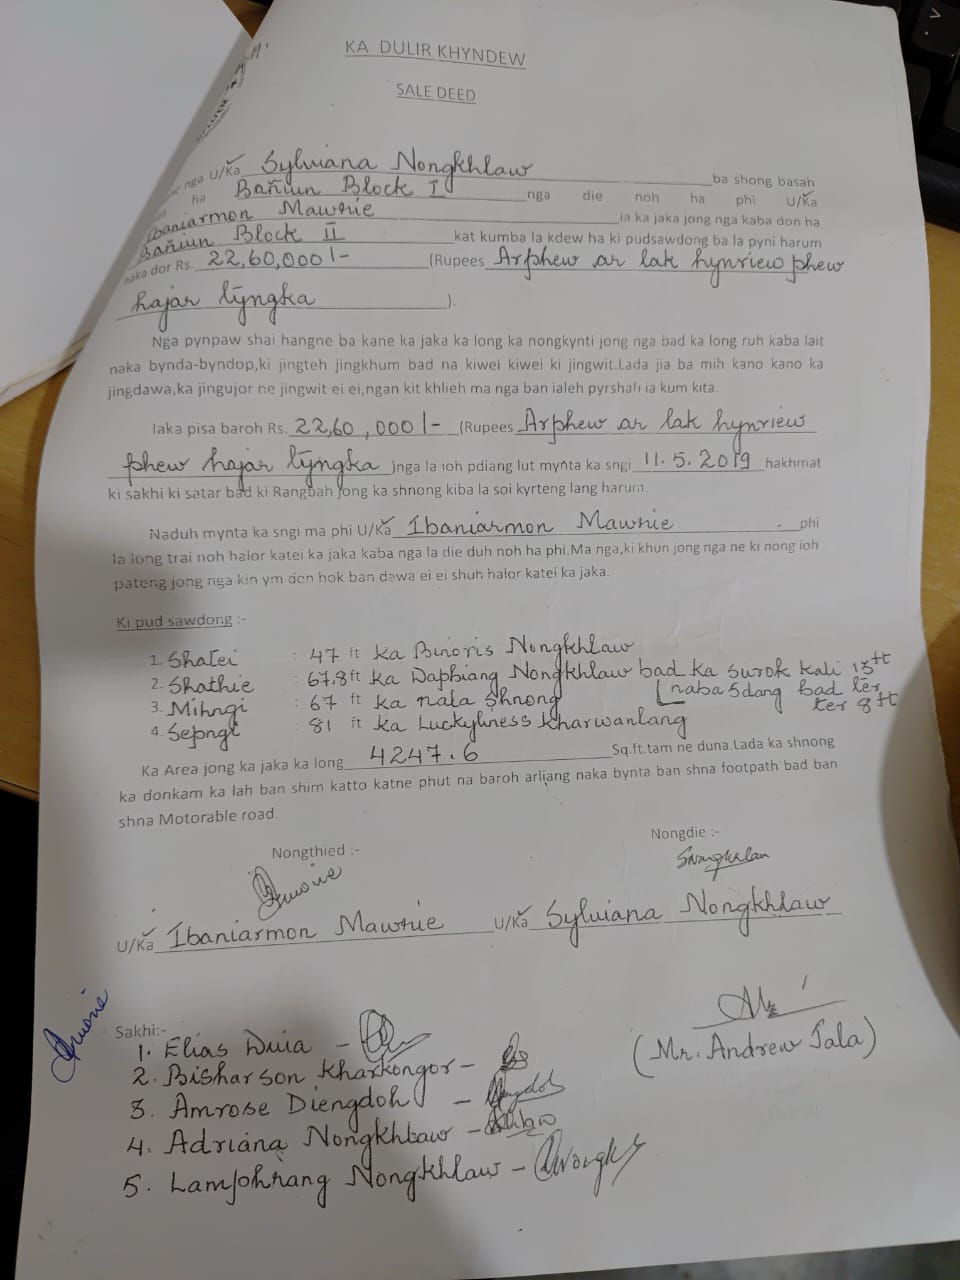 KA DULIR KHYNDEW
SALE DEED
nga U/Ka Sylviana Nongkhlaw ba shong basah
ha Bañiun Block I nga die noh ha phi U/Ka
Ibaniarmon Mawrie ia ka jaka jong nga kaba don ha
Bañiun Block II kat kumba la kdew ha ki pudsawdong ba la pyni harum
naka dor Rs. 22,60,000/- (Rupees Arphew ar lak hynriew phew
hajar lyngka ).
Nga pynpaw shai hangne ba kane ka jaka ka long ka nongkynti jong nga bad ka long ruh kaba lait
naka bynda-byndop,ki jingteh jingkhum bad na kiwei kiwei ki jingwit.Lada jia ba mih kano kano ka
jingdawa,ka jingujor ne jingwit ei ei,ngan kit khlieh ma nga ban ialeh pyrshah ia kum kita.
Iaka pisa baroh Rs. 22,60,000/- (Rupees Arphew ar lak hynriew
phew hajar lyngka )nga la ioh pdiang lut mynta ka sngi 11.5.2019 hakhmat
ki sakhi ki satar bad ki Rangbah jong ka shnong kiba la soi kyrteng lang harum.
Naduh mynta ka sngi ma phi U/Ka Ibaniarmon Mawrie phi
la long trai noh halor katei ka jaka kaba nga la die duh noh ha phi.Ma nga,ki khun jong nga ne ki nong ioh
pateng jong nga kin ym don hok ban dawa ei ei shuh halor katei ka jaka.
Ki pud sawdong :-
1. Shatei : 47 ft ka Binoris Nongkhlaw
2. Shathie : 67.8 ft ka Daphiang Nongkhlaw bad ka surok kali 13ft
naba sdang bad ler
3. Mihngi : 67 ft ka nala shnong
ter 8 ft
4. Sepngi : 81 ft ka Luckyliness Kharwanlang
Ka Area jong ka jaka ka long 4247.6 Sq.ft.tam ne duna.Lada ka shnong
ka donkam ka lah ban shim katto katne phut na baroh arliang naka bynta ban shna footpath bad ban
shna Motorable road.
Nongthied :- Nongdie :-
U/Ka Ibaniarmon Mawrie U/Ka Sylviana Nongkhlaw
Sakhi:-
1. Elias Duia -
2. Bisharson Kharkongor -
3. Amrose Diengdoh -
4. Adriana Nongkhlaw -
5. Lamphrang Nongkhlaw -
(Mr. Andrew Jala)